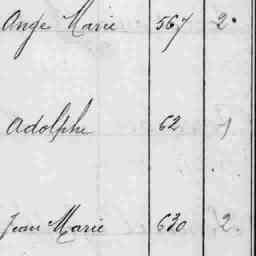 Ange Marie 567 2
Adolphe 62 1
Jean Marie 630 2